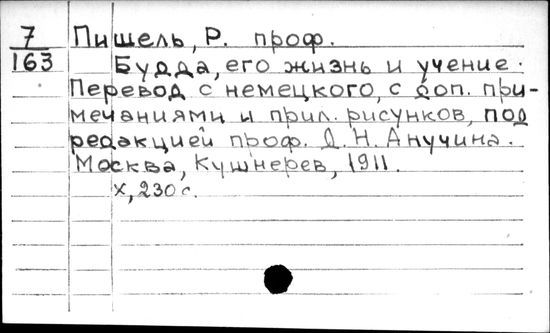 7 Пишель, Р. проф.
163 Будда, его жизнь и учение.
Перевод с немецкого, с доп. при-
мечаниями и прил. рисунков, под
редакцией проф. Д. Н. Анучина.
Москва, Кушнерев, 1911.
X, 230 с.